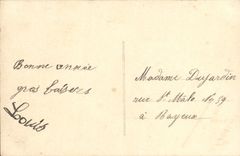 Bonne année
gros baisers
Louis
Madame Dujardin
rue St Malo no 59
à Bayeux